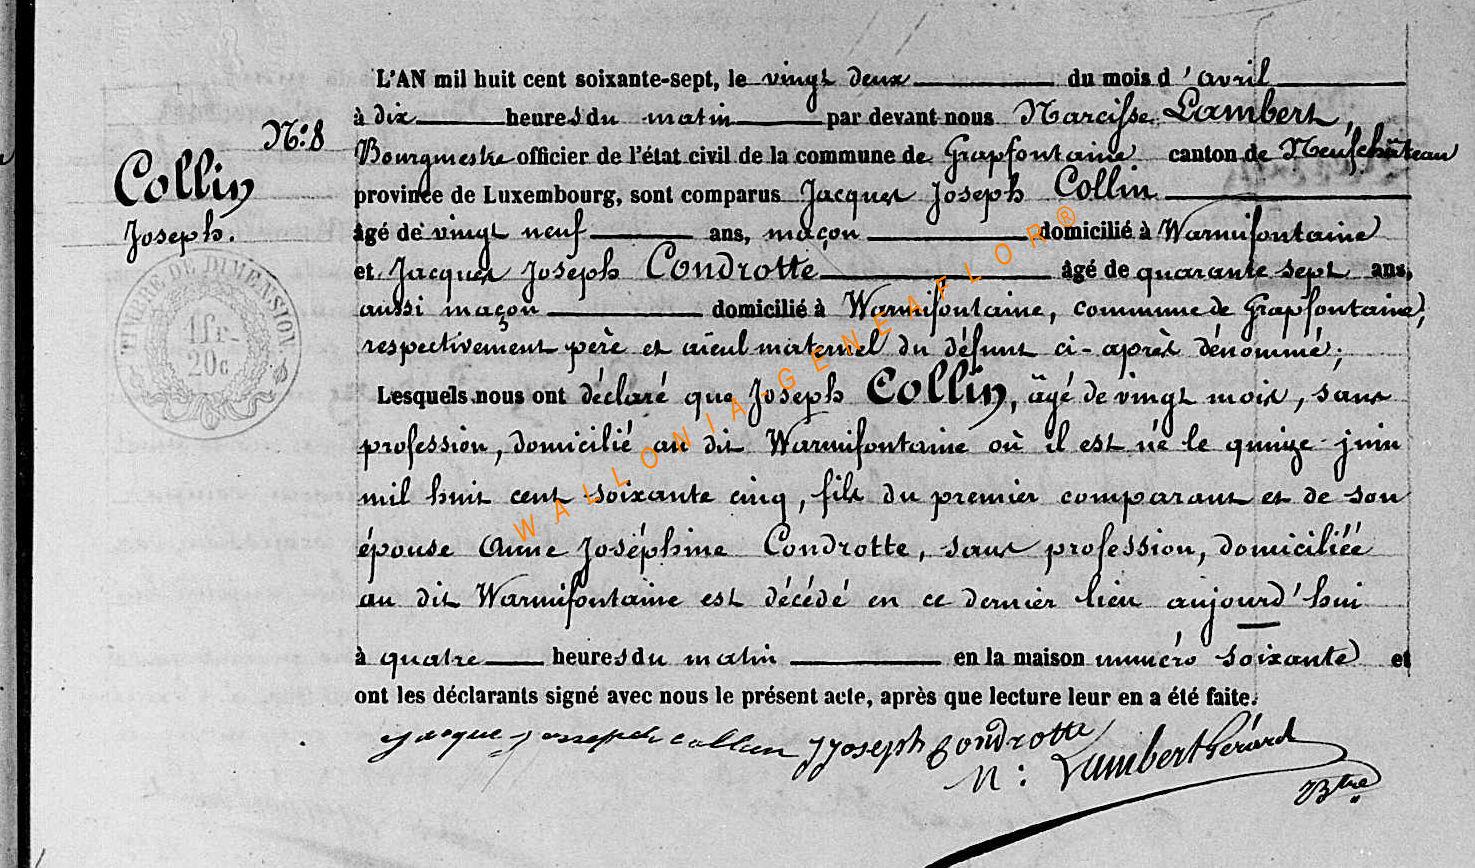 L'AN mil huit cent soixante-sept, le vingt deux du mois d'avril
à dix heures du matin par devant nous Narcisse Lambert,
N°: 8
Bourgmestre officier de l'état civil de la commune de Grapfontaine canton de Neufchâteau
Collin
province de Luxembourg, sont comparus Jacques Joseph Collin
Joseph.
âgé de vingt neuf ans, maçon domicilié à Warmifontaine
et Jacques Joseph Condrotte âgé de quarante sept ans,
aussi maçon domicilié à Warmifontaine, commune de Grapfontaine,
respectivement père et aïeul maternel du défunt ci-après dénommé;
TIMBRE DE DIMENSION
1 fr-
20c
Lesquels nous ont déclaré que Joseph Collin, âgé de vingt mois, sans
profession, domicilié au dit Warmifontaine où il est né le quinze juin
mil huit cent soixante cinq, fils du premier comparant et de son
épouse Anne Joséphine Condrotte, sans profession, domiciliée
au dit Warmifontaine est décédé en ce dernier lieu aujourd'hui
à quatre heures du matin en la maison numéro soixante et
ont les déclarants signé avec nous le présent acte, après que lecture leur en a été faite.
Jacque josseph collin JJoseph Condrotte
N: Lambert Gérard
Btre
WALLONIA-GENEAFLOR®